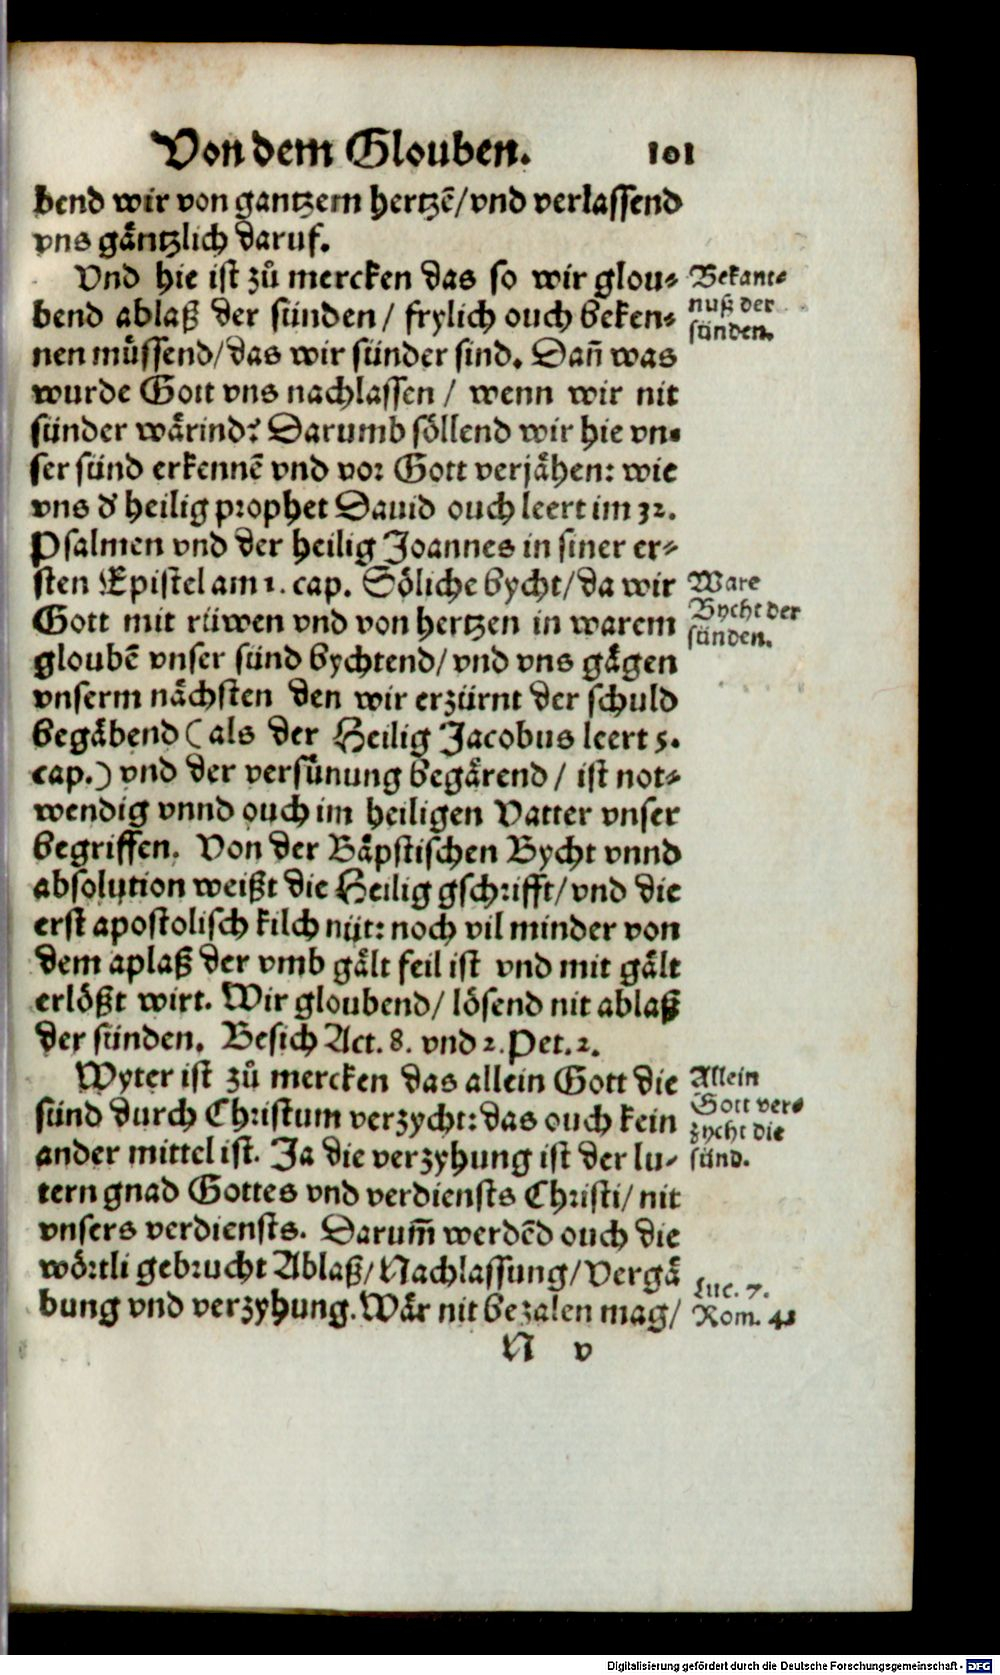 Von dem Glouben. 101
bend wir von gantzem hertzẽ/vnd verlassend
vns gäntzlich daruf.
Vnd hie ist zů mercken das so wir glou⸗
bend ablaß der sünden/ frylich ouch beken⸗
nen müssend/das wir sünder sind. Dañ was
wurde Gott vns nachlassen / wenn wir nit
sünder wärind? Darumb söllend wir hie vn⸗
ser sünd erkennẽ vnd vor Gott verjähen: wie
vns d' heilig prophet Dauid ouch leert im 32.
Psalmen vnd der heilig Joannes in siner er⸗
sten Epistel am 1. cap. Söliche bycht/da wir
Gott mit rüwen vnd von hertzen in warem
gloubẽ vnser sünd bychtend/vnd vns gägen
vnserm nächsten den wir erzürnt der schuld
begäbend (als der Heilig Jacobus leert 5.
cap.) vnd der versünung begärend / ist not⸗
wendig vnnd ouch im heiligen Vatter vnser
begriffen. Von der Bäpstischen Bycht vnnd
absolution weißt die Heilig gschrifft/vnd die
erst apostolisch kilch nüt: noch vil minder von
dem aplaß der vmb gält feil ist vnd mit gält
erlößt wirt. Wir gloubend/ lösend nit ablaß
der sünden. Besich Act. 8. vnd 2. Pet. 2.
Wyter ist zů mercken das allein Gott die
sünd durch Christum verzycht: das ouch kein
ander mittel ist. Ja die verzyhung ist der lu⸗
tern gnad Gottes vnd verdiensts Christi/ nit
vnsers verdiensts. Darum̃ werdẽd ouch die
wörtli gebrucht Ablaß/Nachlassung/Vergä
bung vnd verzyhung. Wär nit bezalen mag/
N v
Bekant⸗
nuß der
sünden.
Ware
Bycht der
sünden.
Allein
Gott ver⸗
zycht die
sünd.
Luc. 7.
Rom. 4.
Digitalisierung gefördert durch die Deutsche Forschungsgemeinschaft - DFG